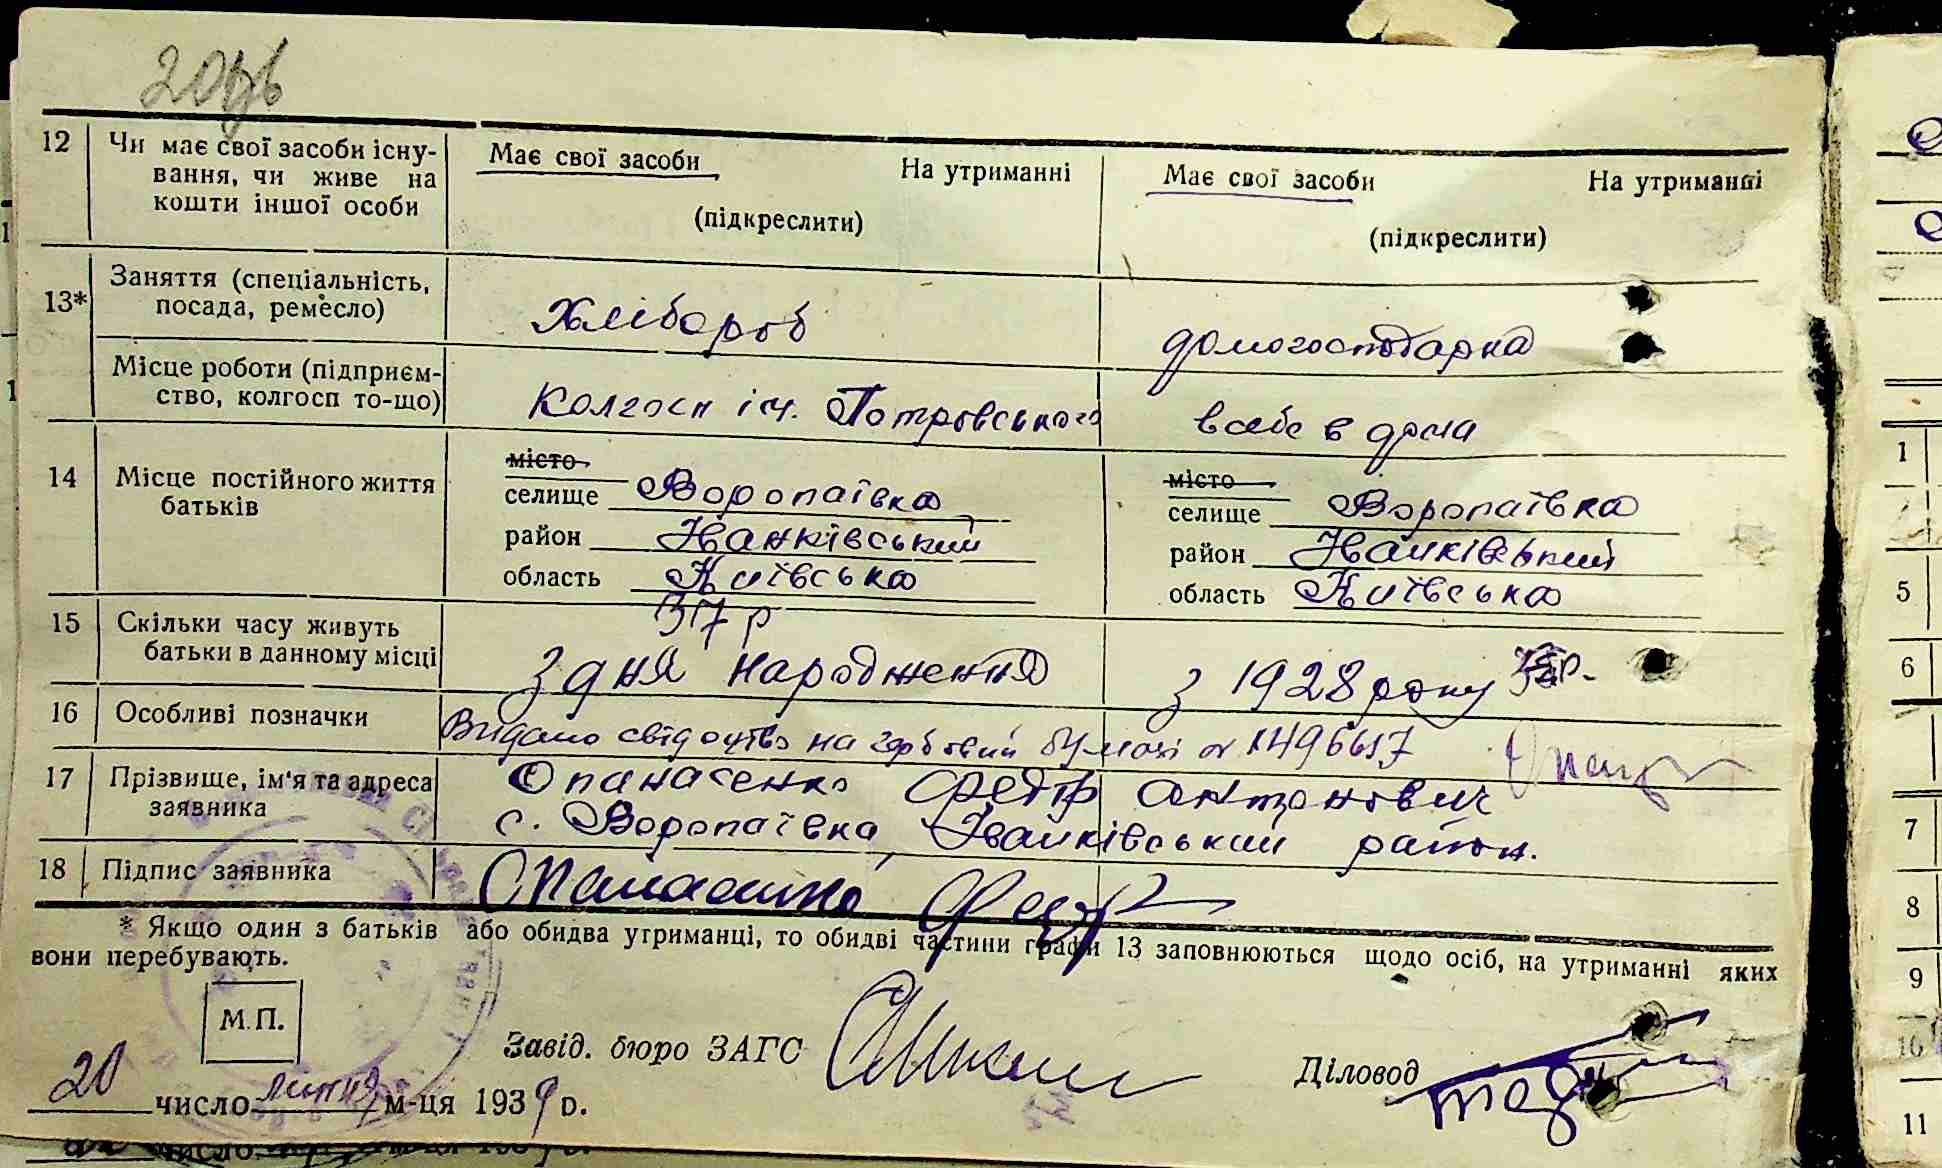 12 Чи має свої засоби існу-
вання, чи живе на
кошти іншої особи
Має свої засоби На утриманні
(підкреслити)
Має свої засоби На утриманні
(підкреслити)
13* Заняття (спеціальність,
посада, ремесло)
Хлібороб
домогосподарка
Місце роботи (підприєм-
ство, колгосп то-що)
Колгосп ім. Петровського
в себе в дома
14 Місце постійного життя
батьків
місто
селище Воропаївка
район Іванківський
область Київська
місто
селище Воропаївка
район Іванківський
область Київська
15 Скільки часу живуть
батьки в данному місці
37 р
З дня народження
з 1928 року
16 Особливі позначки
Видано свідоцтво на гербовій бумазі
17 Прізвище, ім'я та адреса
заявника
Опанасенко Федір Антонович
с. Воропаївка, Іванківський район.
18 Підпис заявника
Опанасенко Федір
* Якщо один з батьків або обидва утриманці, то обидві частини графи 13 заповнюються щодо осіб, на утриманні яких
вони перебувають.
М.П.
Завід. бюро ЗАГС
Діловод
20 число м-ця 1939 р.
1
5
6
7
8
9
10
11